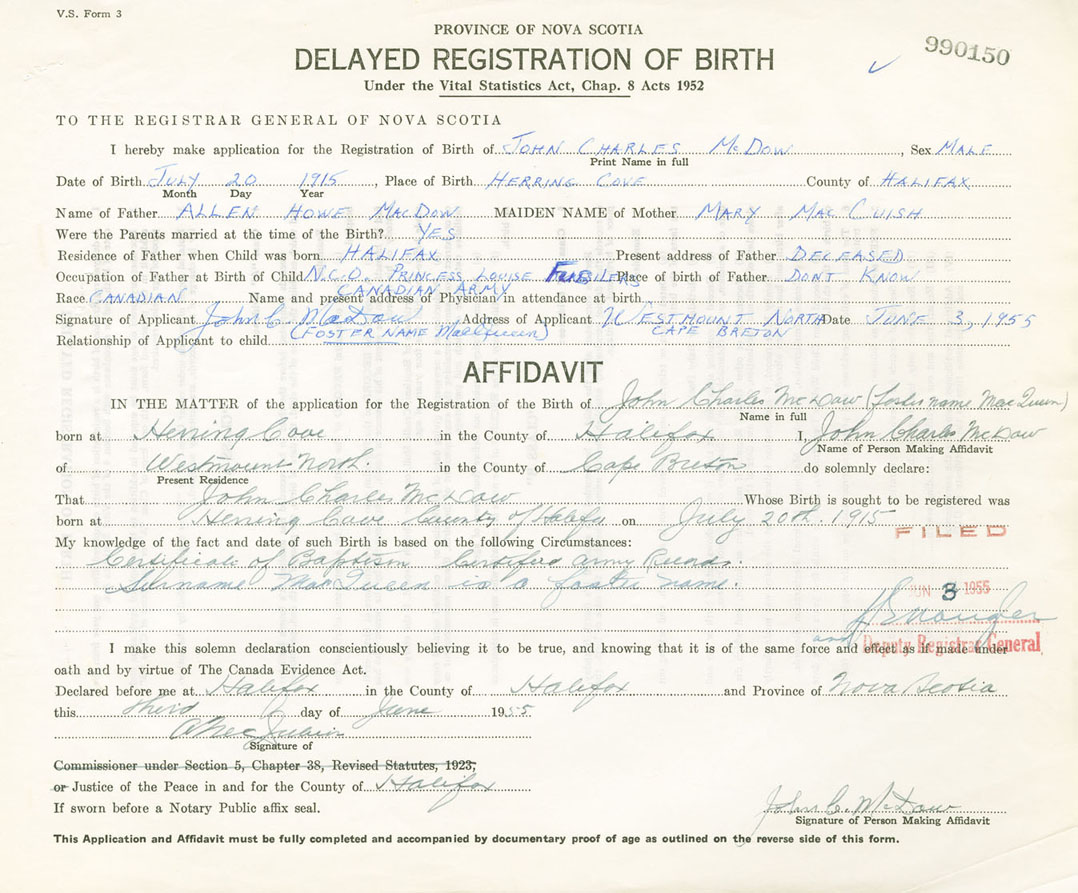 V.S. Form 3
PROVINCE OF NOVA SCOTIA
990150
DELAYED REGISTRATION OF BIRTH
Under the Vital Statistics Act, Chap. 8 Acts 1952
TO THE REGISTRAR GENERAL OF NOVA SCOTIA
I hereby make application for the Registration of Birth of JOHN CHARLES McDOW, Sex MALE
Print Name in full
Date of Birth JULY 20 1915, Place of Birth HERRING COVE County of HALIFAX
Month Day Year
Name of Father ALLEN HOWE MACDOW MAIDEN NAME of Mother MARY MAC CUISH
Were the Parents married at the time of the Birth? YES
Residence of Father when Child was born HALIFAX Present address of Father DECEASED
Occupation of Father at Birth of Child N.C.O. PRINCESS LOUISE FUSILERS Place of birth of Father DONT KNOW
CANADIAN ARMY
Race CANADIAN Name and present address of Physician in attendance at birth
Signature of Applicant John C. MacDow Address of Applicant WESTMOUNT NORTH Date JUNE 3, 1955
(FOSTER NAME MacQueen) CAPE BRETON
Relationship of Applicant to child
AFFIDAVIT
IN THE MATTER of the application for the Registration of the Birth of John Charles McDow (foster name MacQueen)
Name in full
born at Herring Cove in the County of Halifax I, John Charles McDow
Name of Person Making Affidavit
of Westmount North. in the County of Cape Breton do solemnly declare:
Present Residence
That John Charles McDow Whose Birth is sought to be registered was
born at Herring Cove County of Halifa on July 20th. 1915
FILED
My knowledge of the fact and date of such Birth is based on the following Circumstances:
Certificate of Baptism Certified Army Records.
Surname MacQueen is a foster name.
JUN 3 1955
and Deputy Registrar General
I make this solemn declaration conscientiously believing it to be true, and knowing that it is of the same force and effect as if made under
oath and by virtue of The Canada Evidence Act.
Declared before me at Halifax in the County of Halifax and Province of Nova Scotia
this third day of June 1955
Signature of
Commissioner under Section 5, Chapter 38, Revised Statutes, 1923,
or Justice of the Peace in and for the County of Halifax
If sworn before a Notary Public affix seal.
John C. McDow
Signature of Person Making Affidavit
This Application and Affidavit must be fully completed and accompanied by documentary proof of age as outlined on the reverse side of this form.